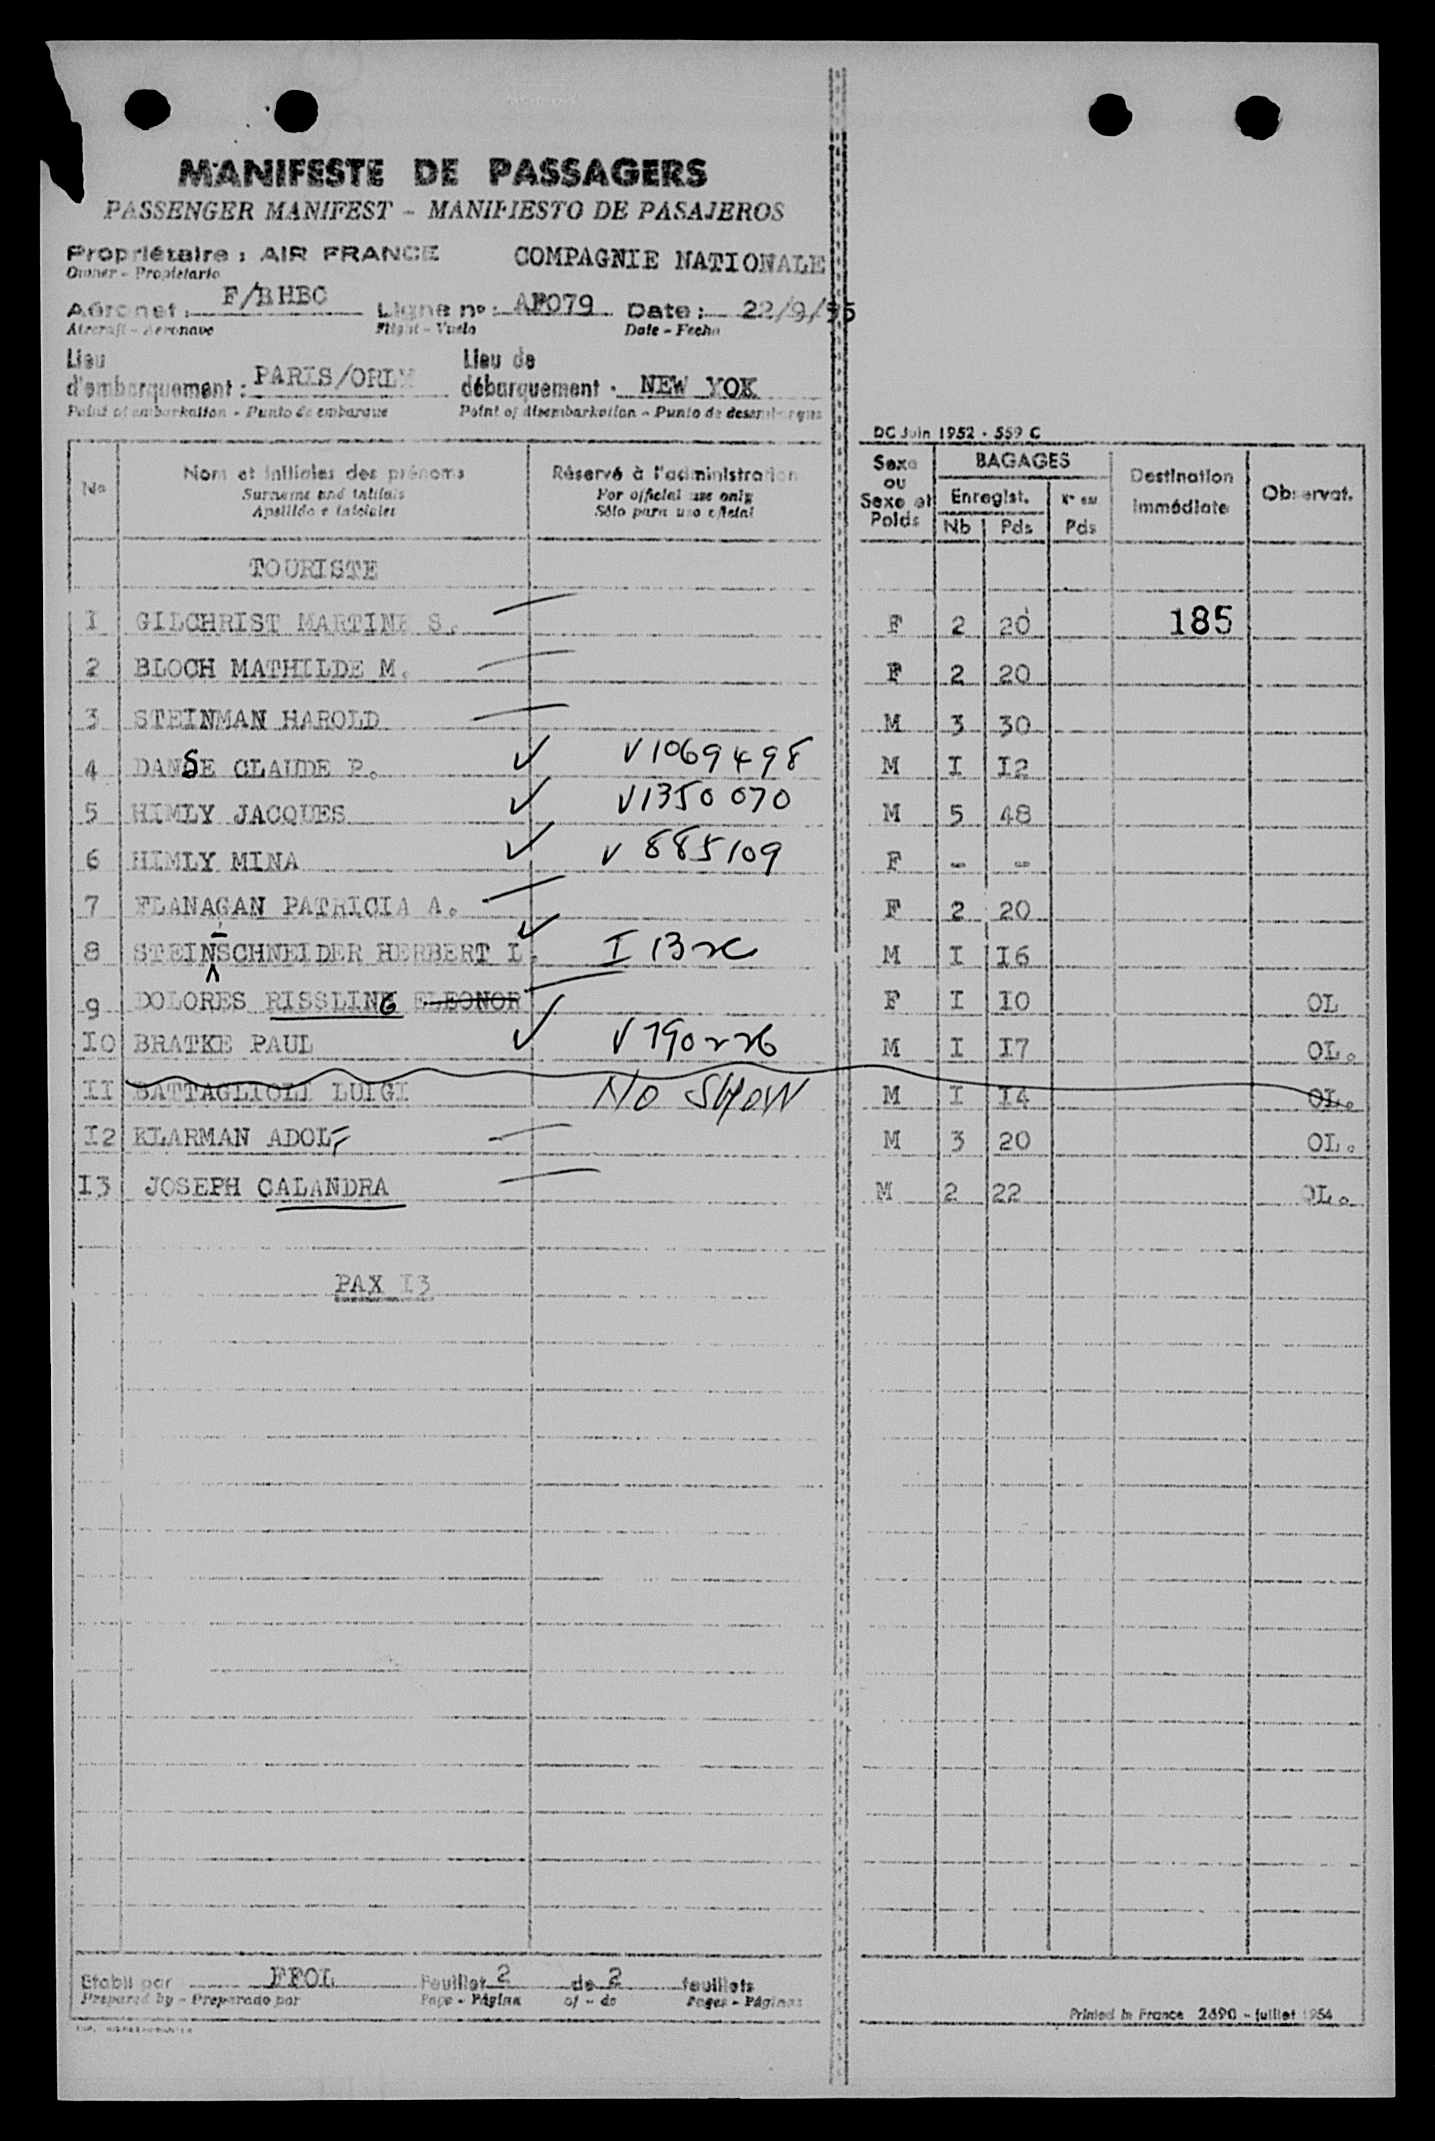 MANIFESTE DE PASSAGERS
PASSENGER MANIFEST - MANIFIESTO DE PASAJEROS
Propriétaire : AIR FRANCE COMPAGNIE NATIONALE
Owner - Propietario
Aéronef : F/BHBC Ligne nº : AF079 Date : 22/9/55
Aircraft - Aeronave Flight - Vuelo Date - Fecha
Lieu d'embarquement : PARIS/ORLY Lieu de débarquement : NEW YOK
Point of embarkation - Punto de embarque Point of disembarkation - Punto de desembarque
DC Juin 1952 - 559 C
No Nom et initiales des prénoms Réservé à l'administration Sexe ou Sexe et Poids BAGAGES Destination immédiate Observat.
Surname and initials For official use only Enregist.
Apellido e iniciales Sólo para uso oficial Nb Pds Pds
TOURISTE
I GILCHRIST MARTINE S. F 2 20 185
2 BLOCH MATHILDE M. F 2 20
3 STEINMAN HAROLD M 3 30
4 DANSE CLAUDE P. ✓ V1069498 M I I2
5 HIMLY JACQUES ✓ V1350070 M 5 48
6 HIMLY MINA ✓ V 885109 F - -
7 FLANAGAN PATRICIA A. F 2 20
8 STEINSCHNEIDER HERBERT L. ✓ I 132c M I I6
9 DOLORES RISSLING ELEONOR F I I0 OL
I0 BRATKE PAUL ✓ V790226 M I I7 OL.
II BATTAGLIOLI LUIGI NO SHOW M I I4 OL.
I2 KLARMAN ADOLF M 3 20 OL.
I3 JOSEPH CALANDRA M 2 22 OL.
PAX I3
Etabli par FFOL Feuillet 2 de 2 feuillets
Prepared by - Preparado por Page - Página of - de Pages - Páginas
Printed in France 2690 - juillet 1954